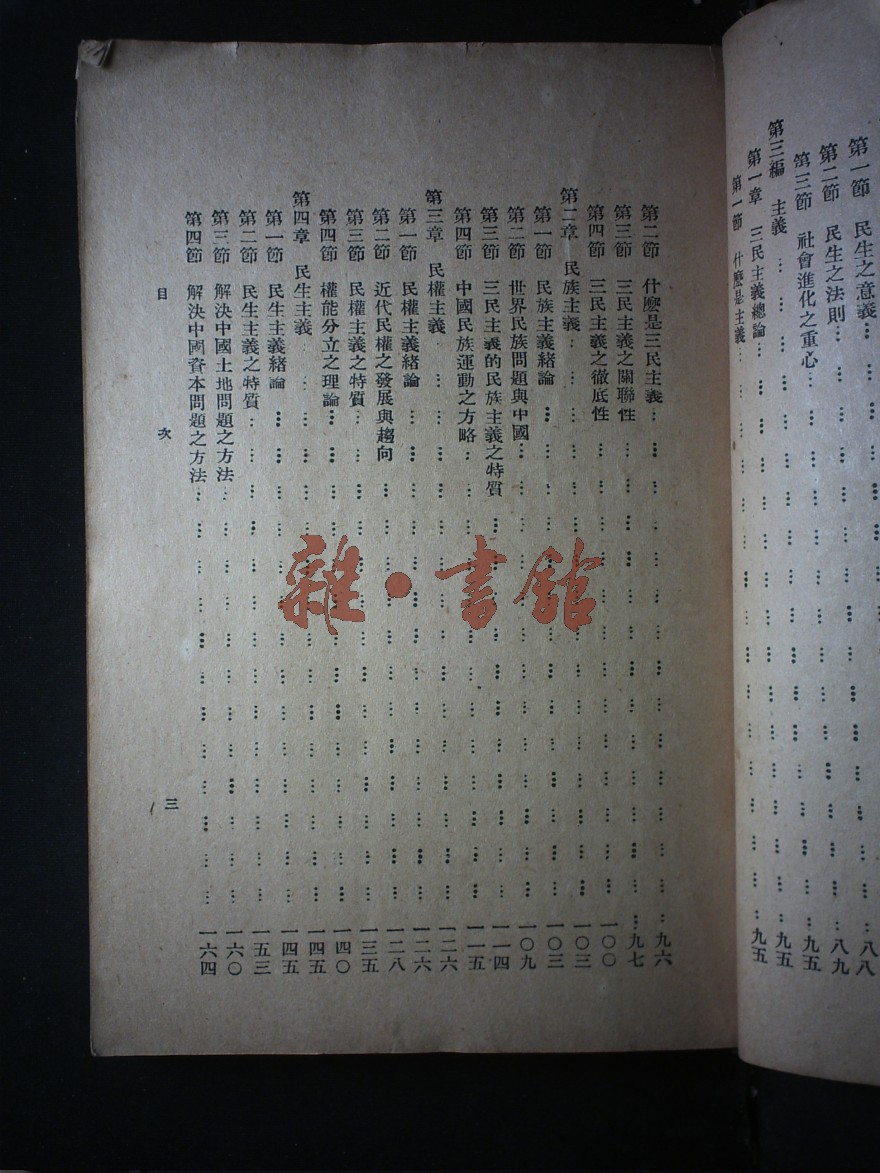 第一節　民生之意義……八八
第二節　民生之法則……八九
第三節　社會進化之重心……九五
第三編　主義……九五
第一章　三民主義總論……九五
第一節　什麼是主義……
第二節　什麼是三民主義……九六
第三節　三民主義之關聯性……九七
第四節　三民主義之徹底性……一〇〇
第二章　民族主義……一〇三
第一節　民族主義緒論……一〇三
第二節　世界民族問題與中國……一〇九
第三節　三民主義的民族主義之特質……一一四
第四節　中國民族運動之方略……一一五
第三章　民權主義……一二六
第一節　民權主義緒論……一二六
第二節　近代民權之發展與趨向……一二八
第三節　民權主義之特質……一三五
第四節　權能分立之理論……一四〇
第四章　民生主義……一四五
第一節　民生主義緒論……一四五
第二節　民生主義之特質……一五三
第三節　解決中國土地問題之方法……一六〇
第四節　解決中國資本問題之方法……一六四
目　次　三
雜·書館